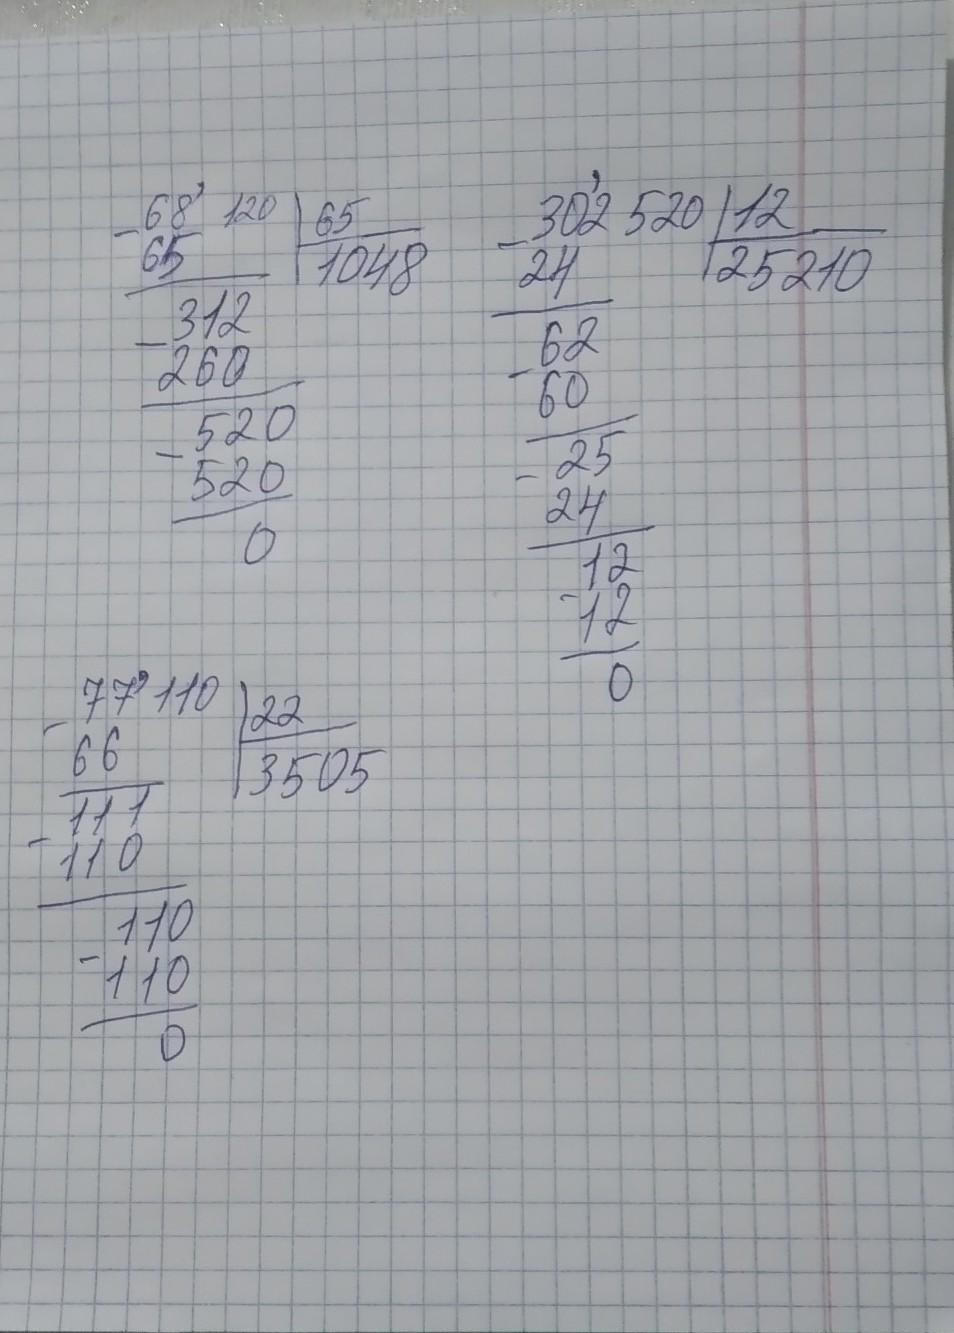 68' 120 | 65
- 65 1048
312
- 260
520
- 520
0
302' 520 | 12
- 24 25210
62
- 60
25
- 24
12
- 12
0
77' 110 | 22
- 66 3505
111
- 110
110
- 110
0